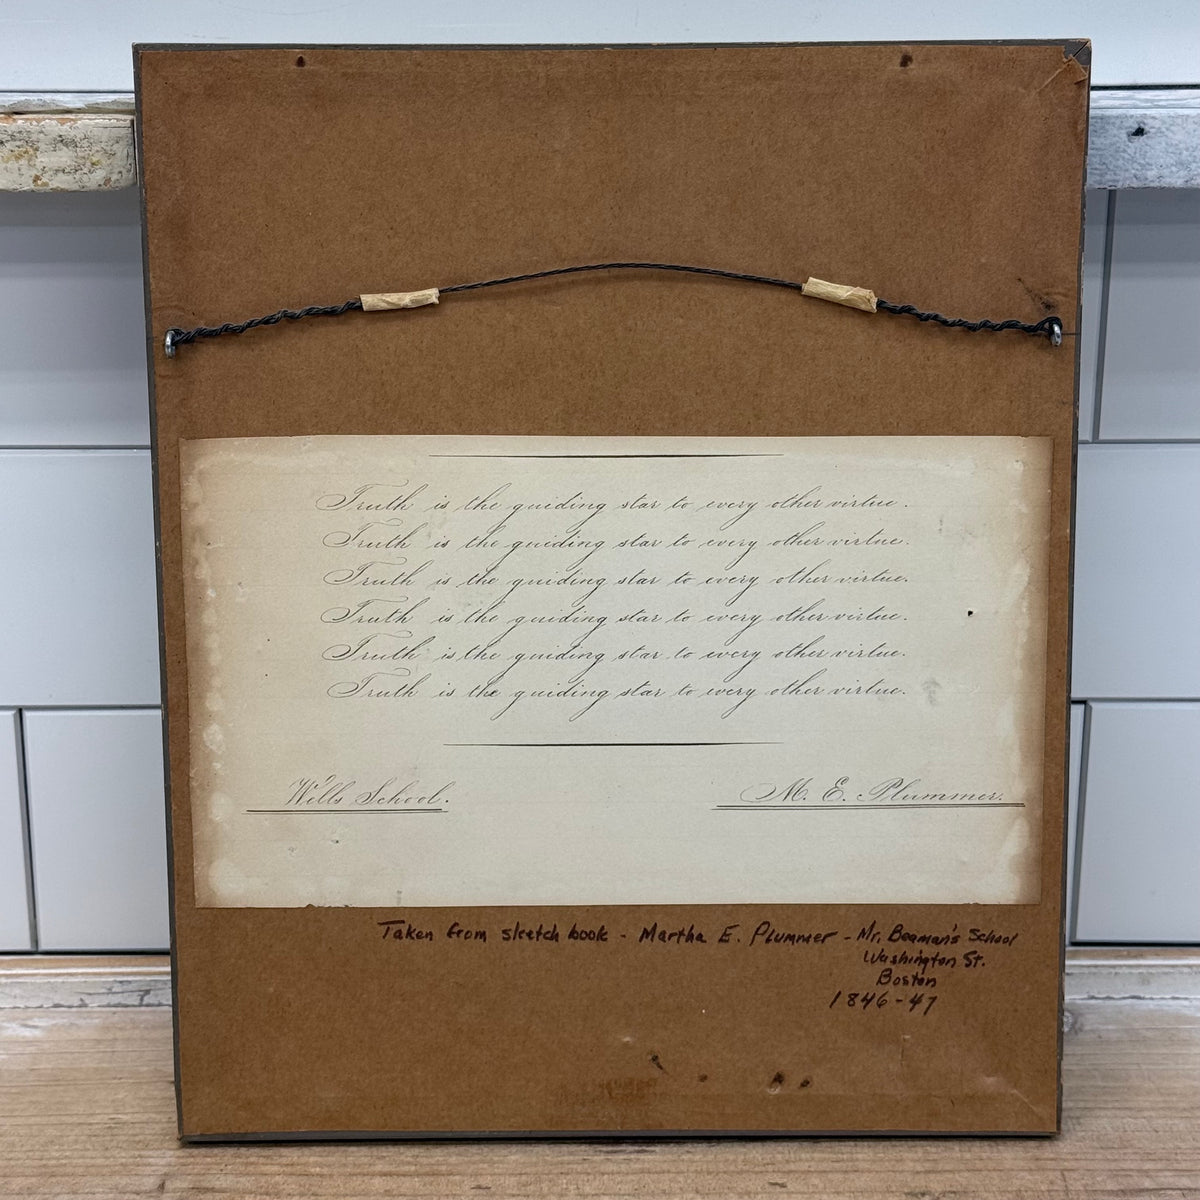 Truth is the guiding star to every other virtue.
Truth is the guiding star to every other virtue.
Truth is the guiding star to every other virtue.
Truth is the guiding star to every other virtue.
Truth is the guiding star to every other virtue.
Truth is the guiding star to every other virtue.
Wells School.
M. E. Plummer.
Taken from sketch book - Martha E. Plummer - Mr. Beaman's School
Washington St.
Boston
1846-47